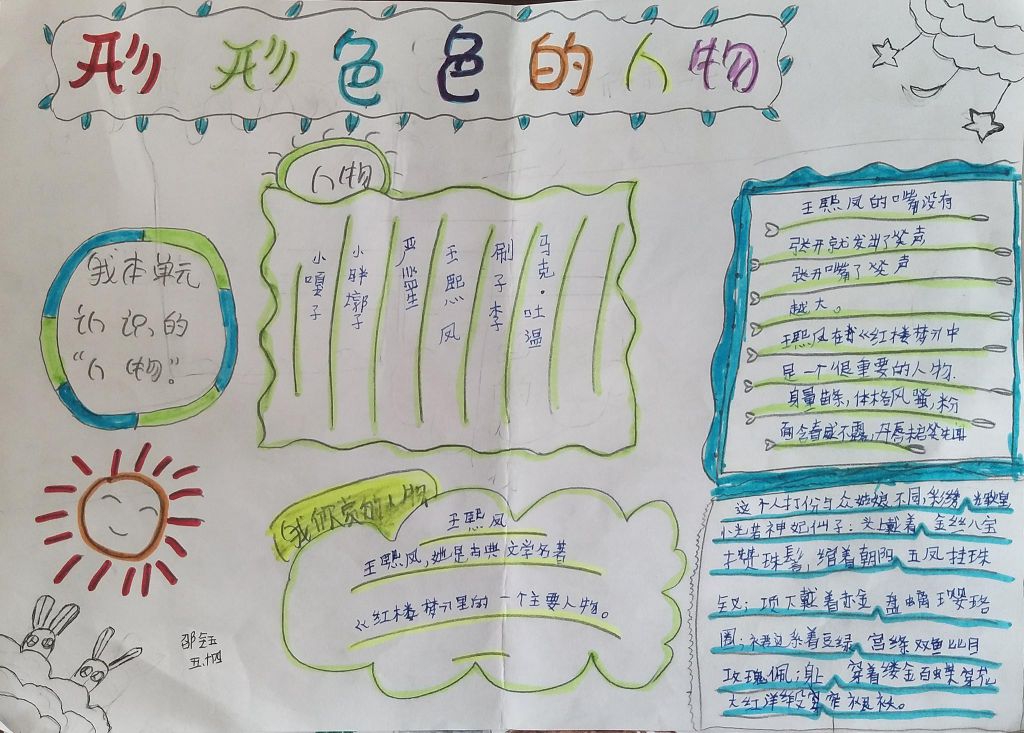 形形色色的人物
人物
我本单元
认识的
“人物”
小嘎子
小胖墩子
严监生
王熙凤
刷子李
马克·吐温
王熙凤的嘴没有
张开就发出了笑声
张开嘴了笑声
越大。
王熙凤在我《红楼梦》中
是一个很重要的人物.
身量苗条,体格风骚,粉
面含春威不露,丹唇未启笑先闻
我欣赏的人物
王熙凤
王熙凤,她是古典文学名著
《红楼梦》里的一个主要人物。
这个人打份与众姑娘不同;彩绣
若神妃仙子:头上戴着金丝八宝
珠髻,绾着朝阳五凤挂珠
钗;项下戴着赤金盘螭璎珞
圈;裙边系着豆绿宫绦双鱼比目
玫瑰佩;身上穿着缕金百蝶穿花
大红洋缎窄裉袄。
五.四